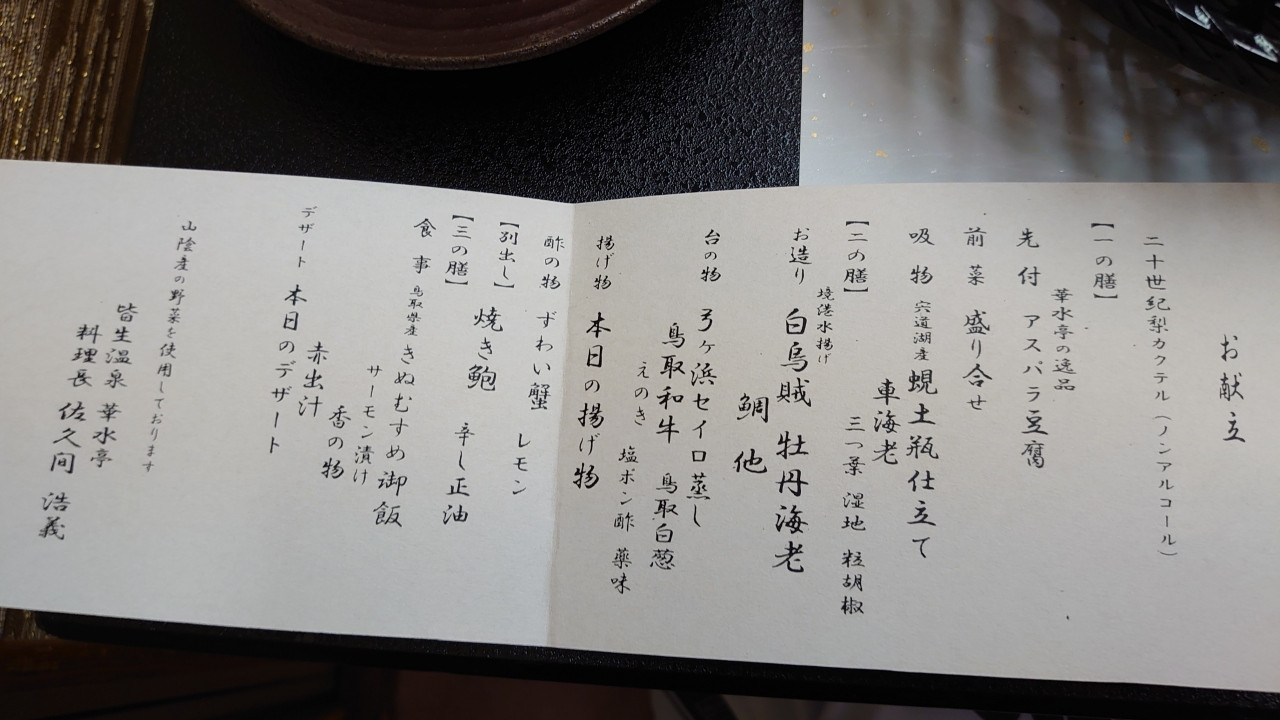 お献立
二十世紀梨カクテル（ノンアルコール）
【一の膳】
華水亭の逸品
先付 アスパラ豆腐
前菜 盛り合せ
吸物 宍道湖産 蜆土瓶仕立て
車海老
三つ葉 湿地 粒胡椒
【二の膳】
境港水揚げ
お造り 白烏賊 牡丹海老
鯛 他
台の物 弓ヶ浜セイロ蒸し
鳥取和牛 鳥取白葱
えのき 塩ポン酢 薬味
揚げ物 本日の揚げ物
酢の物 ずわい蟹 レモン
【別出し】 焼き鮑 辛し正油
【三の膳】
食事 鳥取県産 きぬむすめ御飯
サーモン漬け
香の物
赤出汁
デザート 本日のデザート
山陰産の野菜を使用しております
皆生温泉 華水亭
料理長 佐久間 浩義